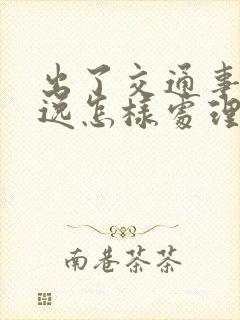 出了交通事
逃怎样处理
南巷茶茶